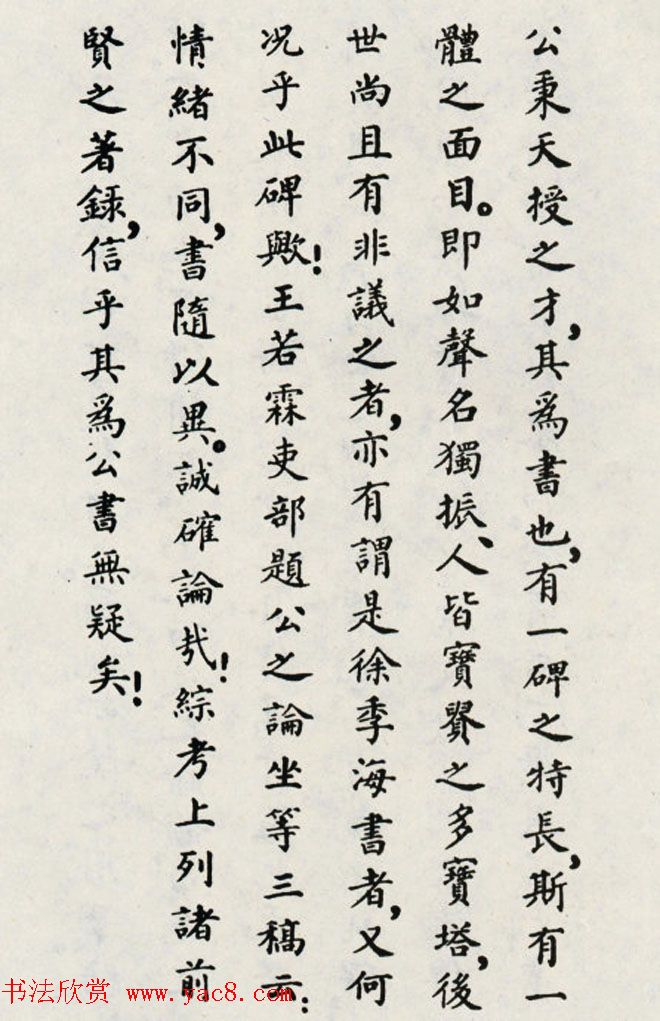 公秉天授之才，其爲書也，有一碑之特長，斯有一
體之面目。即如聲名獨振、人皆寶習之多寶塔，後
世尚且有非議之者，亦有謂是徐季海書者，又何
况乎此碑歟！王若霖吏部題公之論坐等三稿云：
情緒不同，書隨以異。誠確論哉！綜考上列諸前
賢之著録，信乎其爲公書無疑矣！
书法欣赏 www.yac8.com